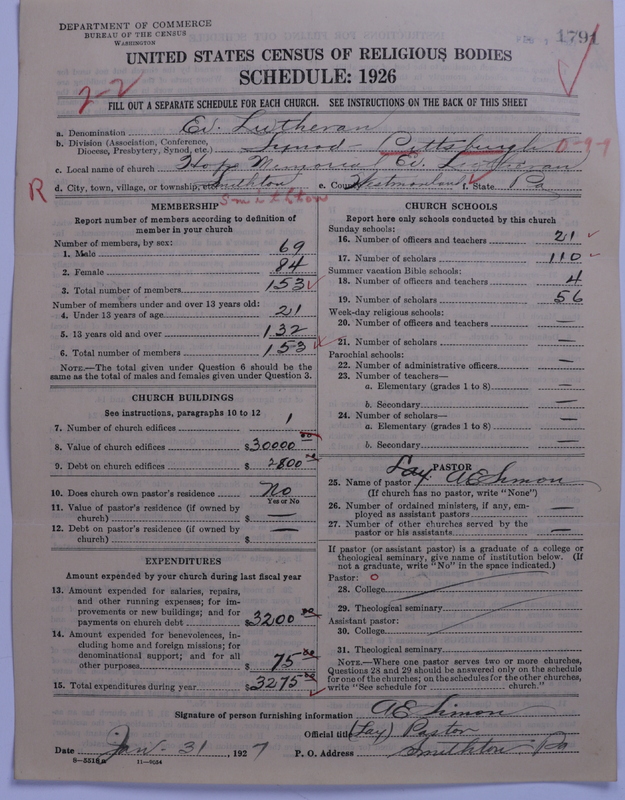 DEPARTMENT OF COMMERCE
BUREAU OF THE CENSUS
WASHINGTON
1791
UNITED STATES CENSUS OF RELIGIOUS BODIES
SCHEDULE: 1926
2-2
FILL OUT A SEPARATE SCHEDULE FOR EACH CHURCH. SEE INSTRUCTIONS ON THE BACK OF THIS SHEET
a. Denomination Ev. Lutheran
b. Division (Association, Conference, Diocese, Presbytery, Synod, etc.) Synod - Pittsburgh 0-9-9
c. Local name of church Hope Memorial Ev. Lutheran
R d. City, town, village, or township, etc. Smithton e. County Westmoreland f. State Pa
Smithton
MEMBERSHIP
Report number of members according to definition of member in your church
Number of members, by sex:
1. Male 69
2. Female 84
3. Total number of members 153
Number of members under and over 13 years old:
4. Under 13 years of age 21
5. 13 years old and over 132
6. Total number of members 153
NOTE.—The total given under Question 6 should be the same as the total of males and females given under Question 3.
CHURCH BUILDINGS
See instructions, paragraphs 10 to 12
7. Number of church edifices 1
8. Value of church edifices $30000 00
9. Debt on church edifices $2800
10. Does church own pastor's residence No
Yes or No
11. Value of pastor's residence (if owned by church) $ —
12. Debt on pastor's residence (if owned by church) $ —
EXPENDITURES
Amount expended by your church during last fiscal year
13. Amount expended for salaries, repairs, and other running expenses; for improvements or new buildings; and for payments on church debt $3200 00
14. Amount expended for benevolences, including home and foreign missions; for denominational support; and for all other purposes $75 00
15. Total expenditures during year $3275 00
CHURCH SCHOOLS
Report here only schools conducted by this church
Sunday schools:
16. Number of officers and teachers 21
17. Number of scholars 110
Summer vacation Bible schools:
18. Number of officers and teachers 4
19. Number of scholars 56
Week-day religious schools:
20. Number of officers and teachers —
21. Number of scholars —
Parochial schools:
22. Number of administrative officers —
23. Number of teachers—
a. Elementary (grades 1 to 8) —
b. Secondary —
24. Number of scholars—
a. Elementary (grades 1 to 8) —
b. Secondary —
PASTOR
25. Name of pastor Lay. A E Simon
(If church has no pastor, write "None")
26. Number of ordained ministers, if any, employed as assistant pastors —
27. Number of other churches served by the pastor or his assistants —
If pastor (or assistant pastor) is a graduate of a college or theological seminary, give name of institution below. (If not a graduate, write "No" in the space indicated.)
Pastor: O
28. College
29. Theological seminary
Assistant pastor:
30. College
31. Theological seminary
NOTE.—Where one pastor serves two or more churches, Questions 28 and 29 should be answered only on the schedule for one of the churches; on the schedules for the other churches, write "See schedule for church."
Signature of person furnishing information A E Simon
Official title (Lay) Pastor
Date Jan. 31, 1927 P. O. Address Smithton Pa
8—5518 a 11—9034